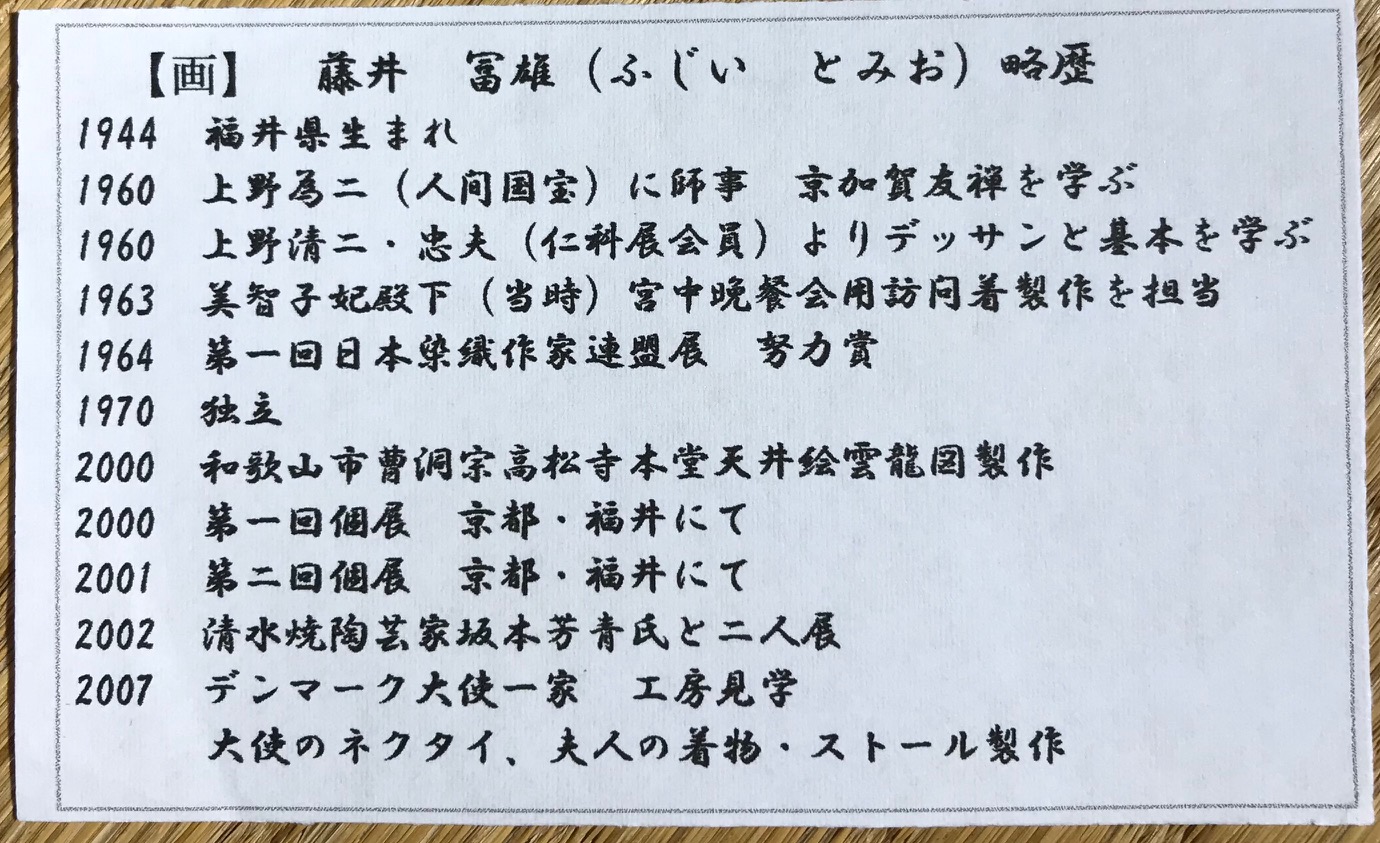 【画】　藤井　冨雄（ふじい　とみお）略歴
1944　福井県生まれ
1960　上野為二（人间国宝）に師事　京加賀友禅を学ぶ
1960　上野清二・忠夫（仁科展会員）よりデッサンと基本を学ぶ
1963　美智子妃殿下（当時）宮中晩餐会用訪问着製作を担当
1964　第一回日本染織作家連盟展　努力賞
1970　独立
2000　和歌山市曹洞宗高松寺本堂天井絵雲龍図製作
2000　第一回個展　京都・福井にて
2001　第二回個展　京都・福井にて
2002　清水焼陶芸家坂本芳青氏と二人展
2007　デンマーク大使一家　工房見学
大使のネクタイ、夫人の着物・ストール製作